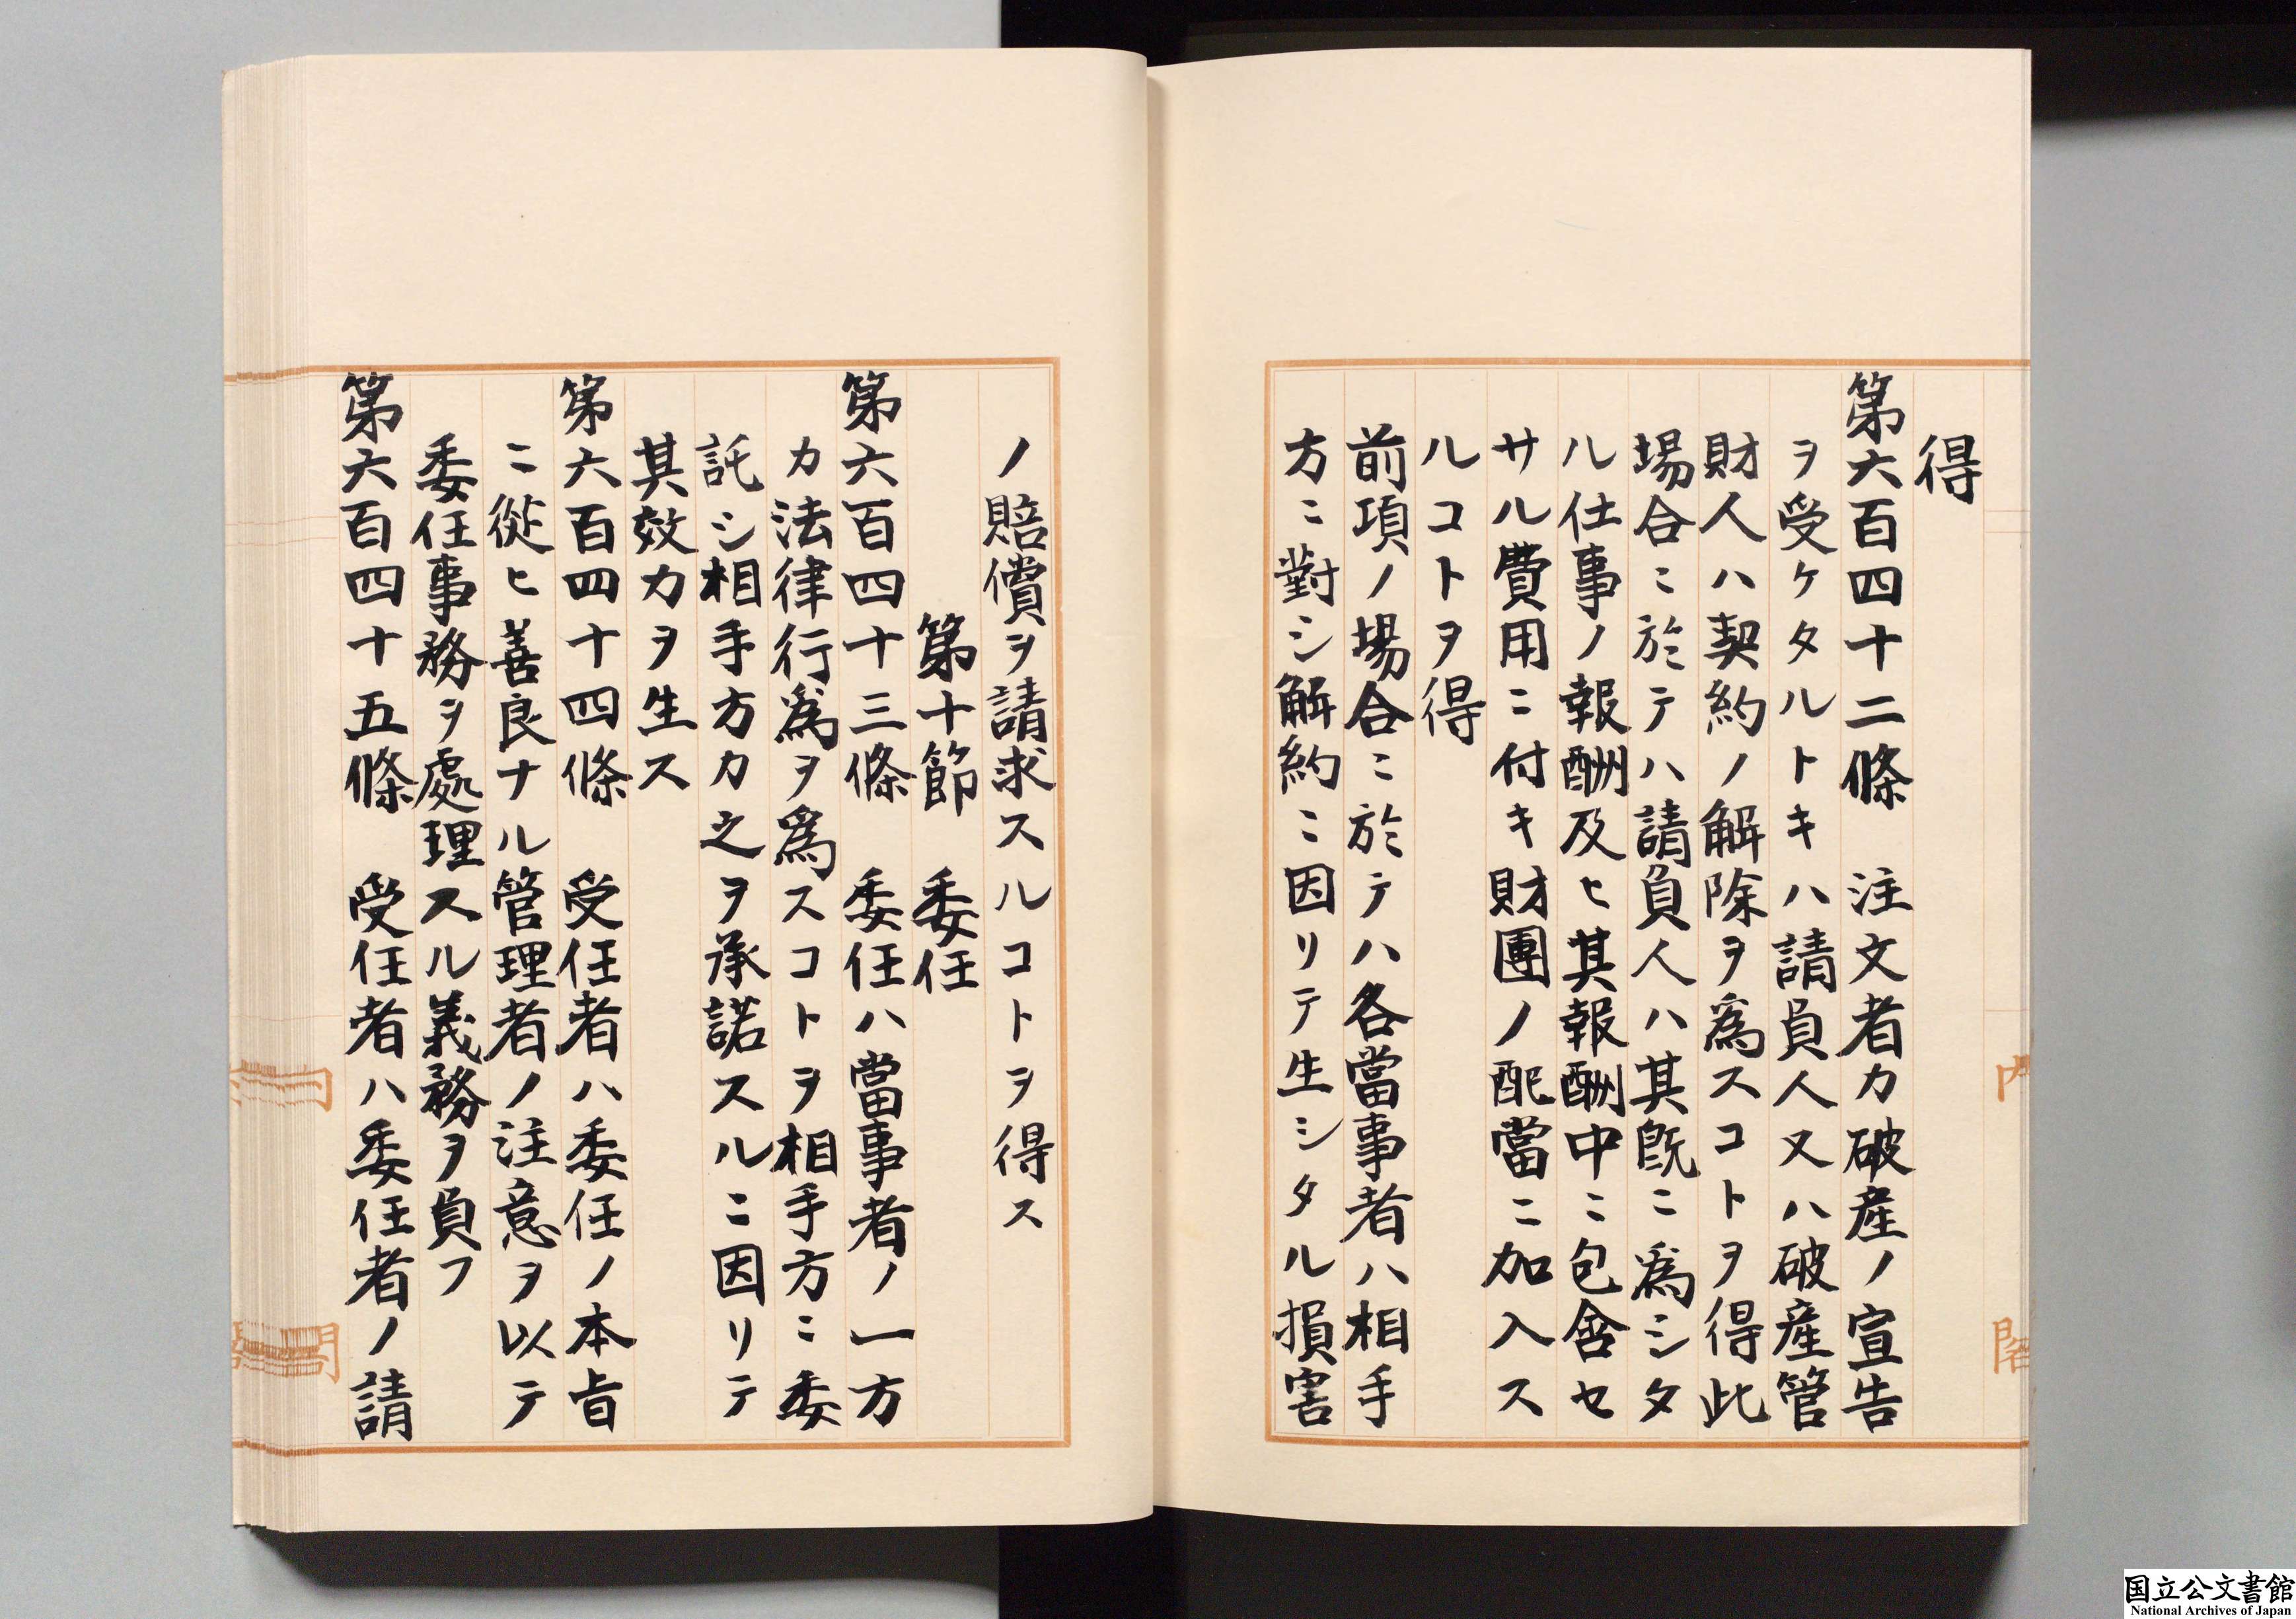 得
第六百四十二條　注文者カ破産ノ宣告
ヲ受ケタルトキハ請負人又ハ破産管
財人ハ契約ノ解除ヲ爲スコトヲ得此
場合ニ於テハ請負人ハ其既ニ爲シタ
ル仕事ノ報酬及ヒ其報酬中ニ包含セ
サル費用ニ付キ財團ノ配當ニ加入ス
ルコトヲ得
前項ノ場合ニ於テハ各當事者ハ相手
方ニ對シ解約ニ因リテ生シタル損害
ノ賠償ヲ請求スルコトヲ得ス
第十節　委任
第六百四十三條　委任ハ當事者ノ一方
カ法律行爲ヲ爲スコトヲ相手方ニ委
託シ相手方カ之ヲ承諾スルニ因リテ
其效力ヲ生ス
第六百四十四條　受任者ハ委任ノ本旨
ニ從ヒ善良ナル管理者ノ注意ヲ以テ
委任事務ヲ處理スル義務ヲ負フ
第六百四十五條　受任者ハ委任者ノ請
内閣
国立公文書館
National Archives of Japan